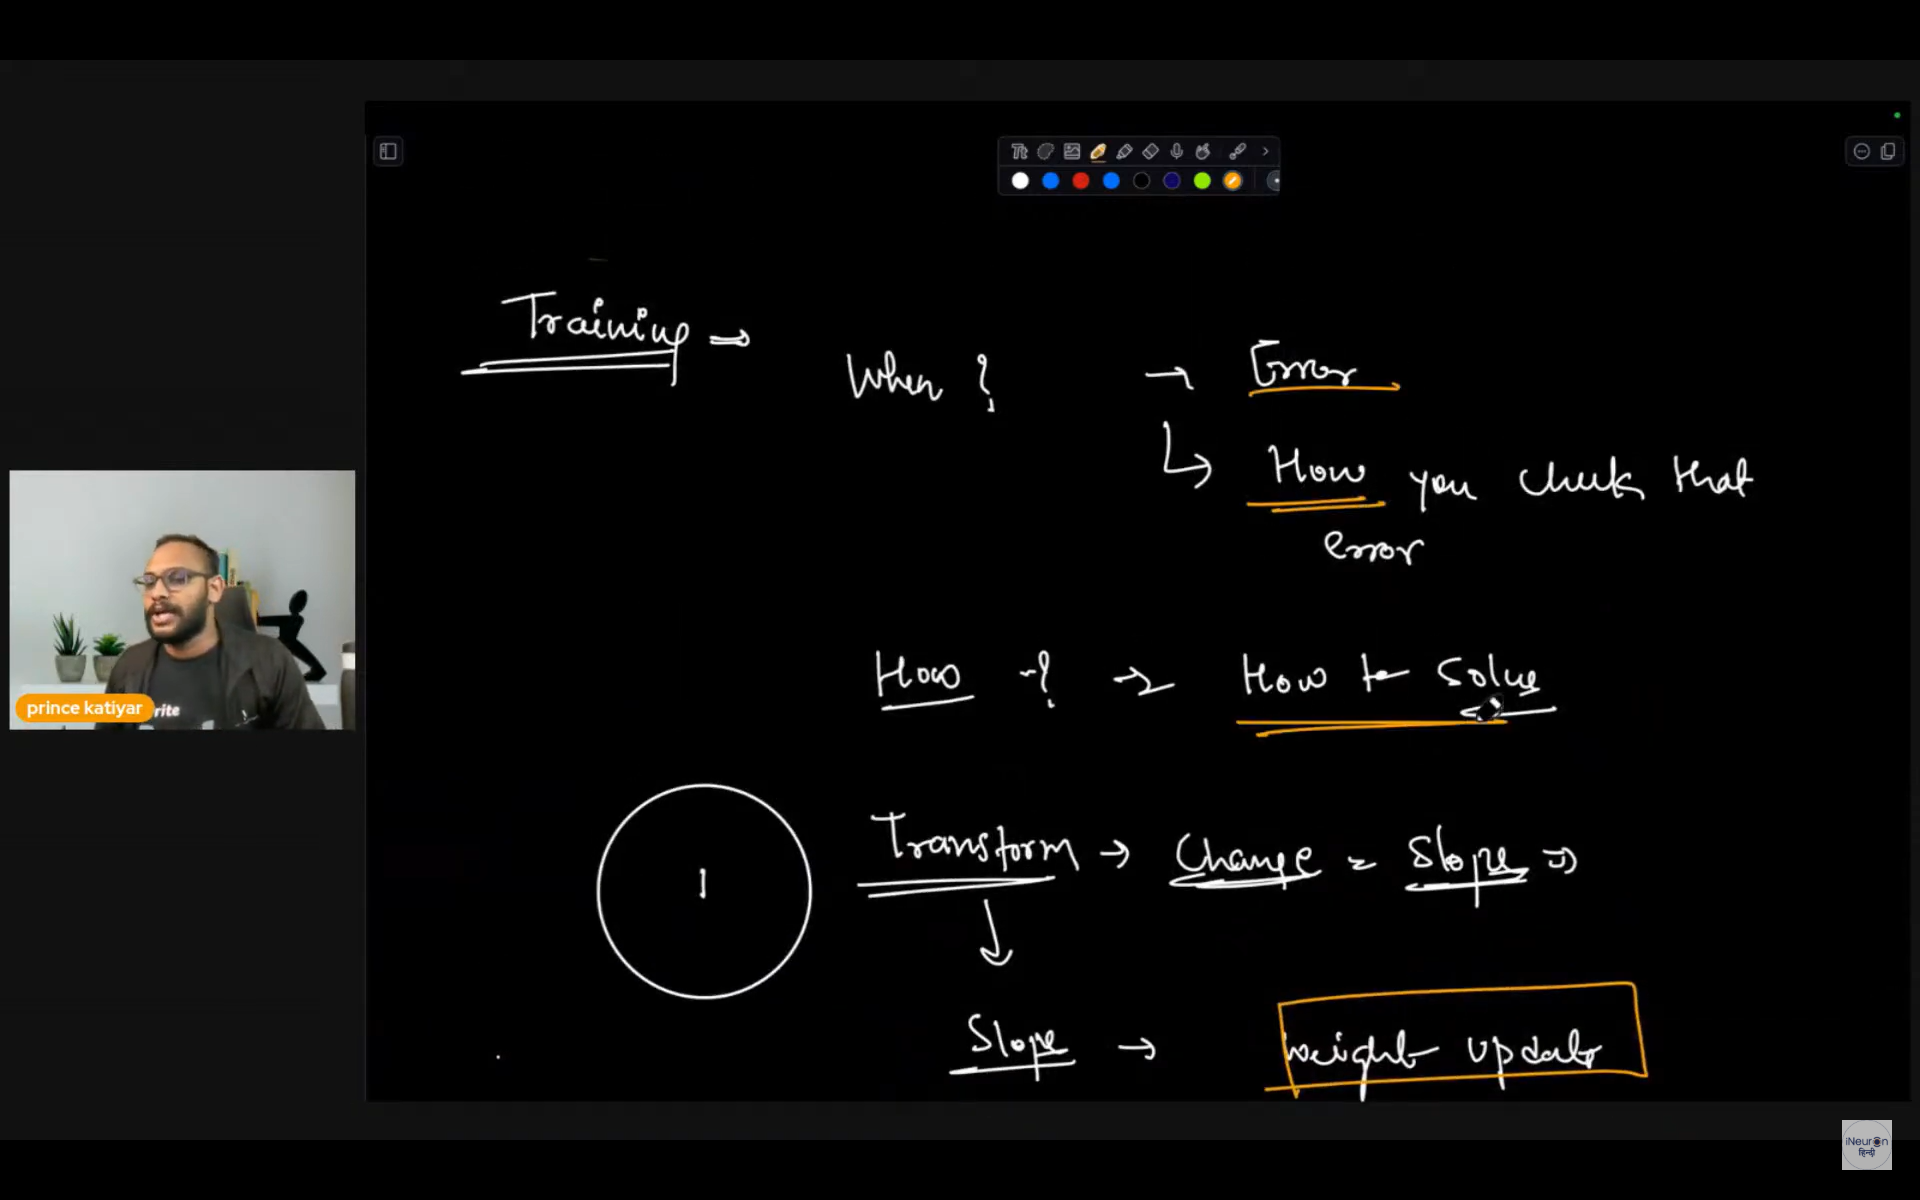 Tt
Training ⇒
When ? → Error
↳ How you check that
error
How ? → How to Solve
1
Transform → Change = Slope ⇒
↓
Slope → weight update
rite
prince katiyar
iNeuron
हिन्दी